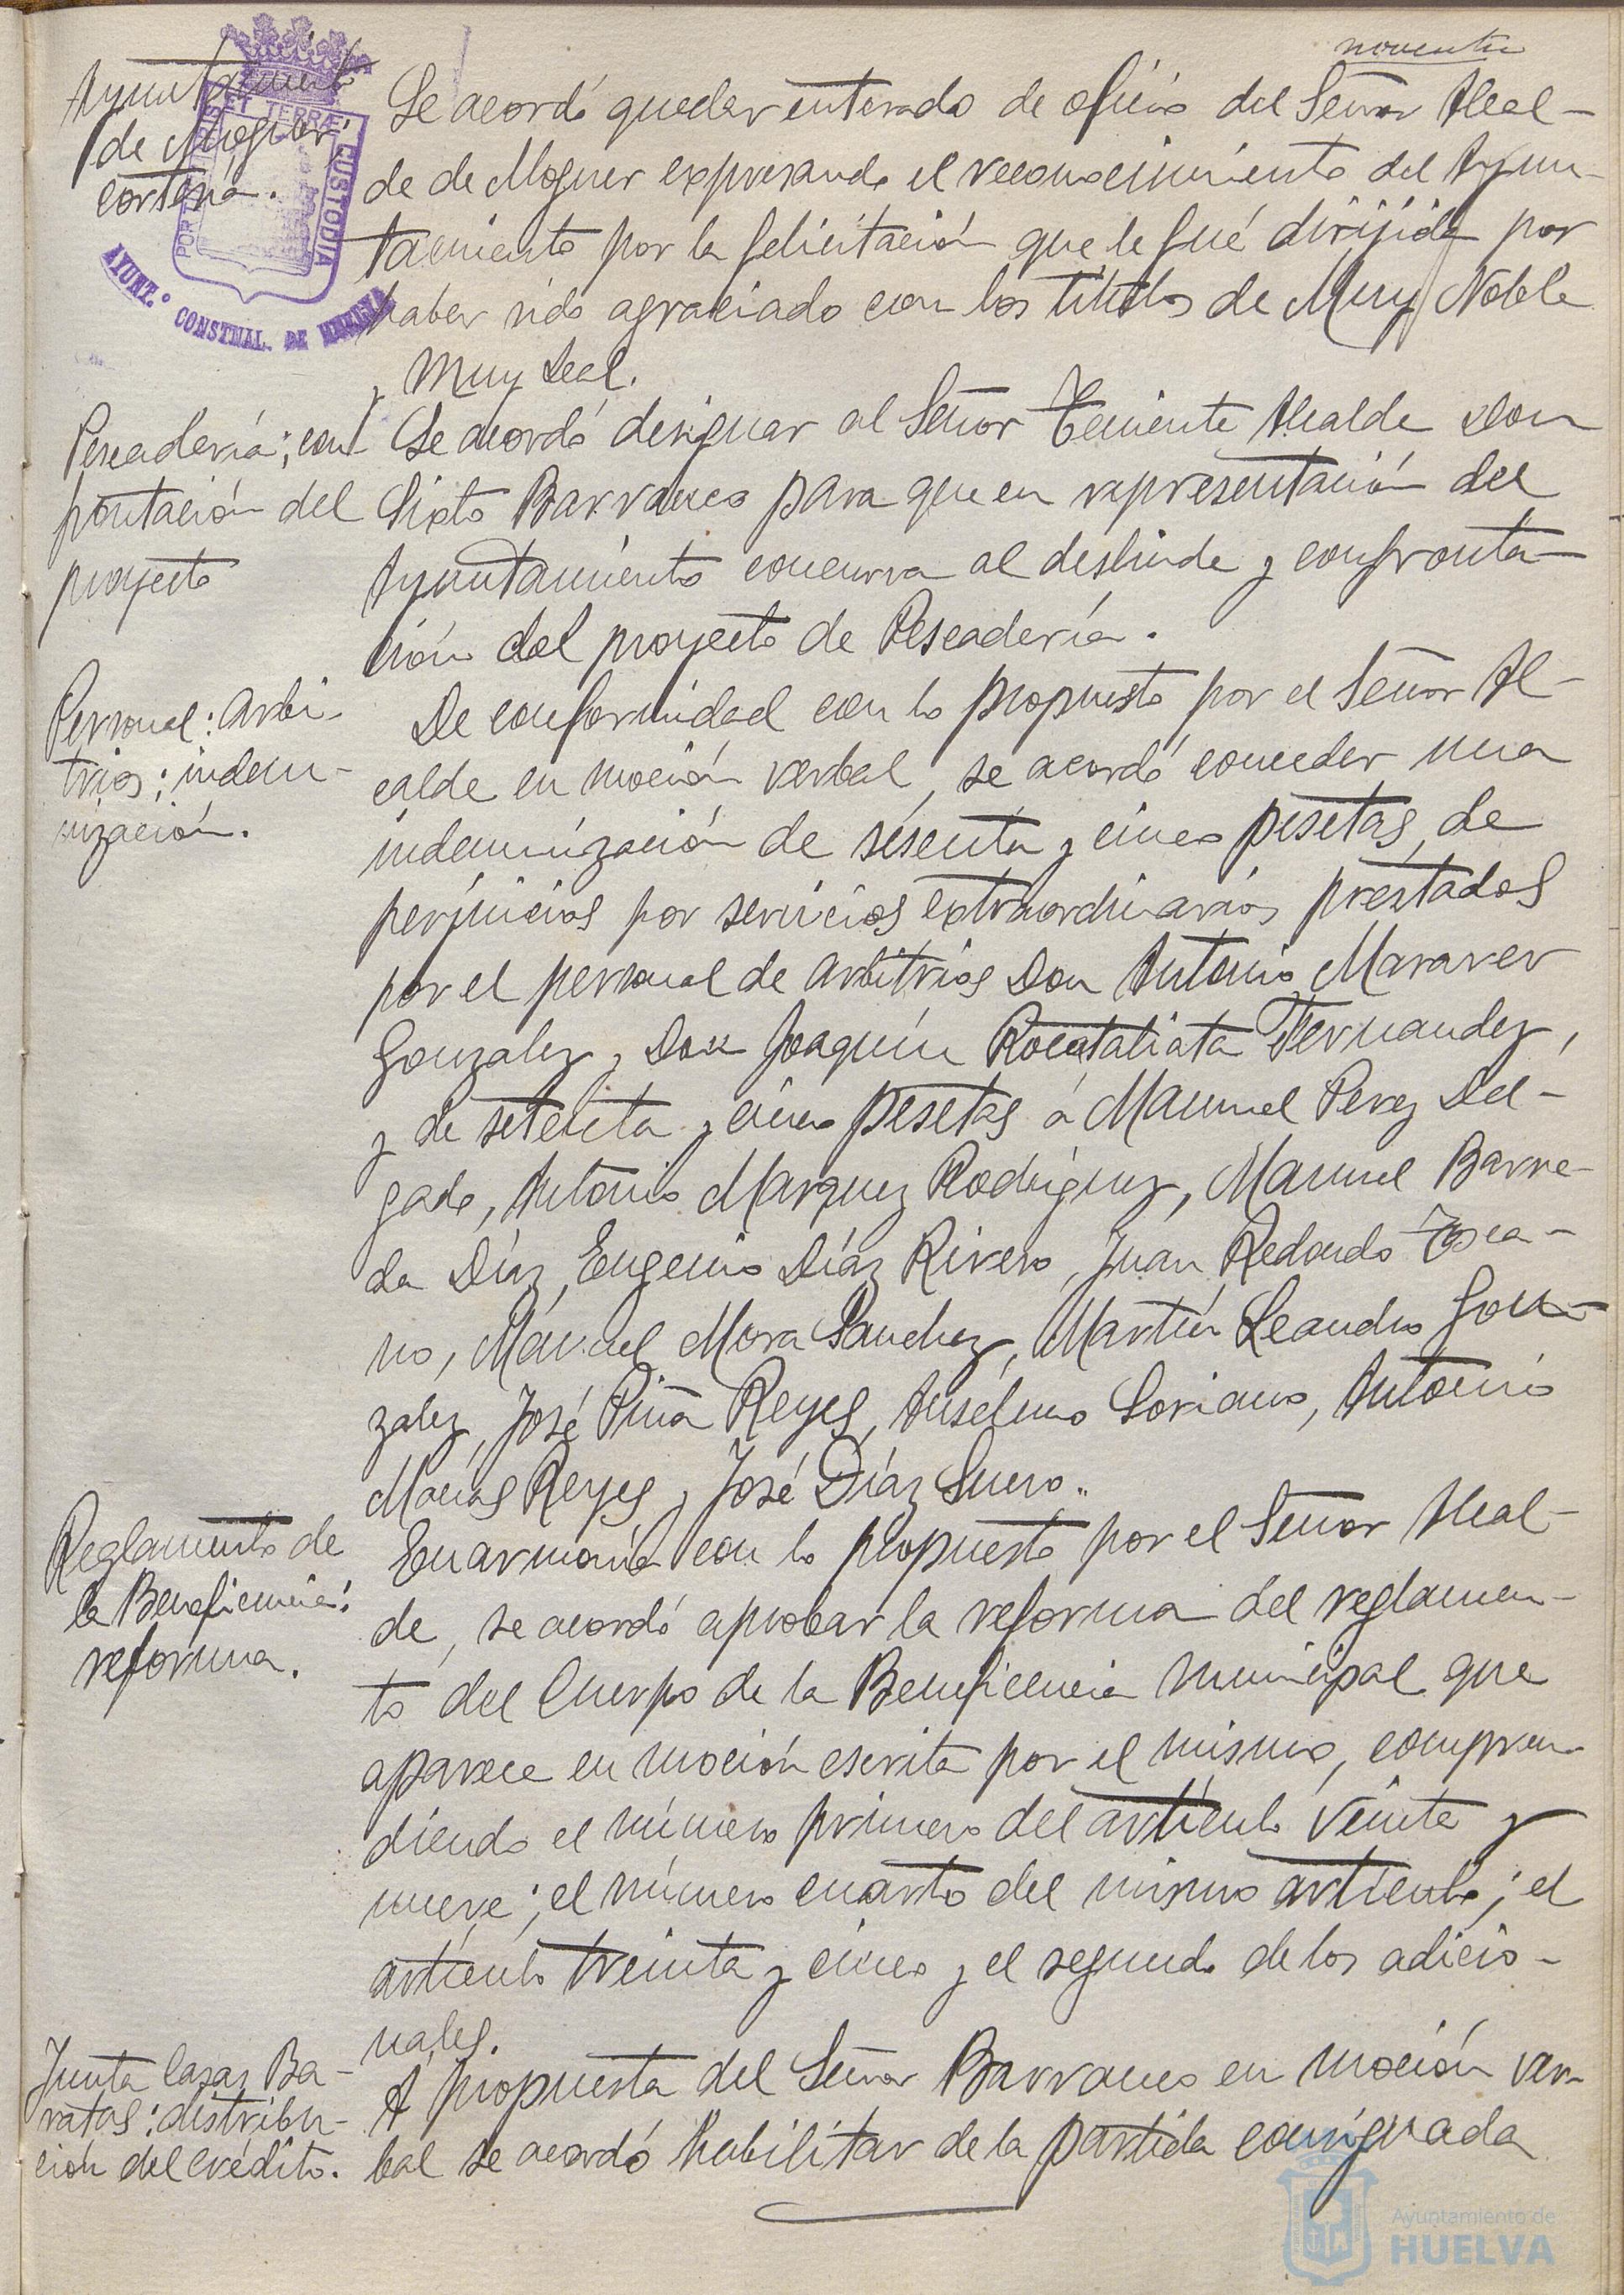 noventa
Ayuntamiento
de Moguer;
cortesía.
PORTUS MARIS ET TERRÆ CUSTODIA
AYUNT.º CONSTNAL. DE HUELVA
Se acordó quedar enterado de oficio del Señor Alcal-
de de Moguer expresando el reconocimiento del Ayun-
tamiento por la felicitación que le fué dirijida por
haber sido agraciado con los títulos de Muy Noble
y Muy Leal.
Pescadería; con
frontación del
proyecto
Se acordó designar al Señor Teniente Alcalde Don
Sixto Barranco para que en representación del
Ayuntamiento concurra al deslinde y confronta-
ción del proyecto de Pescadería.
Personal: Arbi-
trios; indem-
nización.
De conformidad con lo propuesto por el Señor Al-
calde en moción verbal, se acordó conceder una
indemnización de sesenta y cinco pesetas de
perjuicios por servicios extraordinarios prestados
por el personal de arbitrios Don Antonio Maraver
Gonzalez y Don Joaquín Rocatallata Fernandez,
y de setenta y cinco pesetas á Manuel Perez Del-
gado, Antonio Marquez Rodriguez, Manuel Barre-
da Díaz, Eugenio Díaz Rivero, Juan Redondo Tosca-
no, Manuel Mora Sanchez, Martín Leandro Gon-
zalez, José Piña Reyes, Anselmo Soriano, Antonio
Macías Reyes y José Díaz Suero.
Reglamento de
la Beneficencia:
reforma.
En armonía con lo propuesto por el Señor Alcal-
de, se acordó aprobar la reforma del reglamen-
to del Cuerpo de la Beneficencia Municipal que
aparece en moción escrita por el mismo, compren-
diendo el número primero del artículo veinte y
nueve; el número cuarto del mismo artículo; el
artículo treinta y cinco y el segundo de los adicio-
nales.
Junta Casas Ba-
ratas: distribu-
ción del crédito.
A propuesta del Señor Barranco en moción ver-
bal se acordó habilitar de la partida consignada
Ayuntamiento de
HUELVA